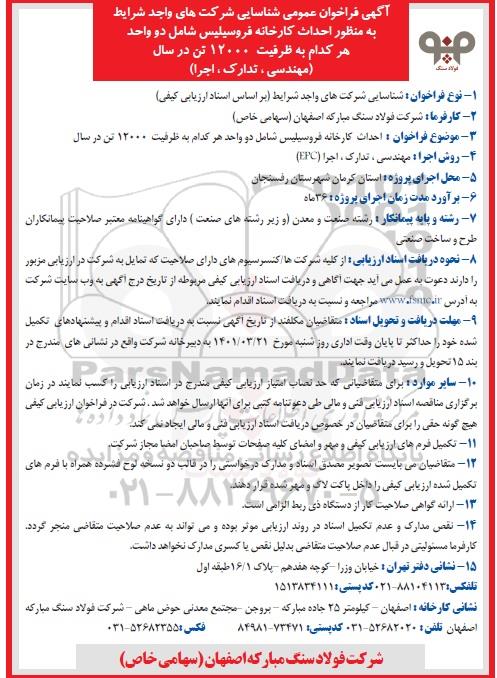 آگهی فراخوان عمومی شناسایی شرکت های واجد شرایط
به منظور احداث کارخانه فروسیلیس شامل دو واحد
هر کدام به ظرفیت ۱۲۰۰۰ تن در سال
(مهندسی ، تدارک ، اجرا)
فولاد سنگ
۱- نوع فراخوان : شناسایی شرکت های واجد شرایط (بر اساس اسناد ارزیابی کیفی)
۲- کارفرما : شرکت فولاد سنگ مبارکه اصفهان (سهامی خاص)
۳- موضوع فراخوان : احداث کارخانه فروسیلیس شامل دو واحد هر کدام به ظرفیت ۱۲۰۰۰ تن در سال
۴- روش اجرا : مهندسی ، تدارک ، اجرا (EPC)
۵- محل اجرای پروژه : استان کرمان شهرستان رفسنجان
۶- برآورد مدت زمان اجرای پروژه : ۳۶ماه
۷- رشته و پایه پیمانکار : رشته صنعت و معدن (و زیر رشته های صنعت ) دارای گواهینامه معتبر صلاحیت پیمانکاران
طرح و ساخت صنعتی
۸- نحوه دریافت اسناد ارزیابی : از کلیه شرکت ها/کنسرسیوم های دارای صلاحیت که تمایل به شرکت در ارزیابی مزبور
را دارند دعوت به عمل می آید جهت آگاهی و دریافت اسناد ارزیابی کیفی مربوطه از تاریخ درج آگهی به وب سایت شرکت
به آدرس www.fsmc.ir مراجعه و نسبت به دریافت اسناد اقدام نمایند.
۹- مهلت دریافت و تحویل اسناد : متقاضیان مکلفند از تاریخ آگهی نسبت به دریافت اسناد اقدام و پیشنهادهای تکمیل
شده خود را حداکثر تا پایان وقت اداری روز شنبه مورخ ۱۴۰۱/۰۳/۲۱ به دبیرخانه شرکت واقع در نشانی های مندرج در
بند ۱۵ تحویل و رسید دریافت نمایند.
۱۰- سایر موارد : برای متقاضیانی که حد نصاب امتیاز ارزیابی کیفی مندرج در اسناد ارزیابی را کسب نمایند در زمان
برگزاری مناقصه اسناد ارزیابی فنی و مالی طی دعوتنامه کتبی برای آنها ارسال خواهد شد . شرکت در فراخوان ارزیابی کیفی
هیچ گونه حقی را برای متقاضیان در خصوص دریافت اسناد ارزیابی فنی و مالی ایجاد نمی کند.
۱۱- تکمیل فرم های ارزیابی کیفی و مهر و امضای کلیه صفحات توسط صاحبان امضا مجاز شرکت.
۱۲- متقاضیان می بایست تصویر مصدق اسناد و مدارک درخواستی را در قالب دو نسخه لوح فشرده همراه با فرم های
تکمیل شده ارزیابی کیفی را داخل پاکت لاک و مهر شده قرار دهند.
۱۳- ارائه گواهی صلاحیت کار از دستگاه ذی ربط الزامی است.
۱۴- نقص مدارک و عدم تکمیل اسناد در روند ارزیابی موثر بوده و می تواند به عدم صلاحیت متقاضی منجر گردد.
کارفرما مسئولیتی در قبال عدم صلاحیت متقاضی بدلیل نقص یا کسری مدارک نخواهد داشت.
۱۵- نشانی دفتر تهران : خیابان وزرا -کوچه هفدهم -پلاک ۱۶/۱ طبقه اول
تلفکس: ۸۸۱۰۴۱۱۳-۰۲۱ کدپستی: ۱۵۱۳۸۳۴۱۱۱
نشانی کارخانه : اصفهان - کیلومتر ۲۵ جاده مبارکه - بروجن -مجتمع معدنی حوض ماهی - شرکت فولاد سنگ مبارکه
اصفهان تلفن : ۵۲۶۸۲۰۲۰-۰۳۱ کدپستی: ۷۳۴۷۱-۸۴۹۸۱ فکس: ۵۲۶۸۲۳۵۵-۰۳۱
شرکت فولاد سنگ مبارکه اصفهان (سهامی خاص)
ParsNamadData
پایگاه اطلاع رسانی مناقصه و مزایده
۰۲۱-۸۸۳۴۹۶۷۰-۵